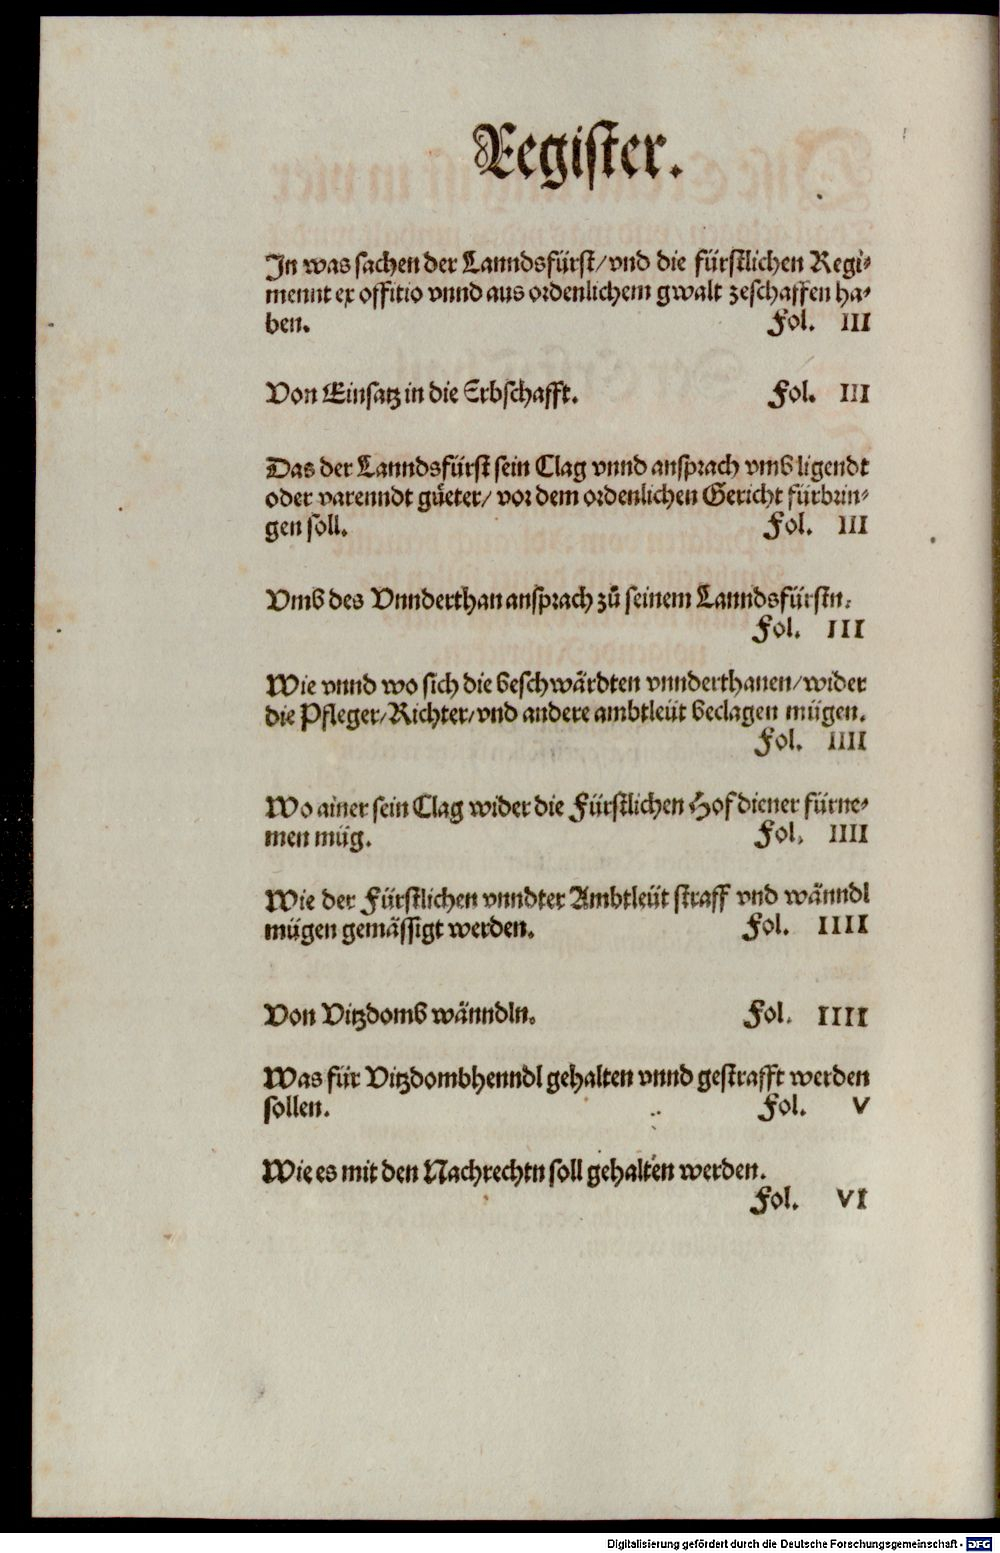 Register.
In was sachen der Lanndsfürst/vnd die fürstlichen Regi-
mennt ex offitio vnnd aus ordenlichem gwalt zeschaffen ha-
ben. Fol. III
Von Einsatz in die Erbschafft. Fol. III
Das der Lanndsfürst sein Clag vnnd ansprach vmb ligendt
oder varenndt güeter/ vor dem ordenlichen Gericht fürbrin-
gen soll. Fol. III
Vmb des Vnnderthan ansprach zů seinem Lanndsfürstn.
Fol. III
Wie vnnd wo sich die beschwärdten vnnderthanen/wider
die Pfleger/Richter/vnd andere ambtleüt beclagen mügen.
Fol. IIII
Wo ainer sein Clag wider die Fürstlichen Hofdiener fürne-
men müg. Fol. IIII
Wie der Fürstlichen vnndter Ambtleüt straff vnd wänndl
mügen gemässigt werden. Fol. IIII
Von Vitzdomb wänndln. Fol. IIII
Was für Vitzdombhenndl gehalten vnnd gestrafft werden
sollen. Fol. V
Wie es mit den Nachrechtn soll gehalten werden.
Fol. VI
Digitalisierung gefördert durch die Deutsche Forschungsgemeinschaft - DFG